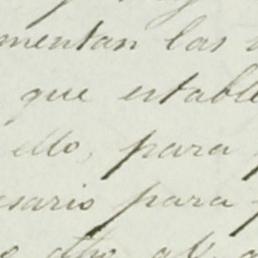 mentan las
que estable
ello, para
esario para